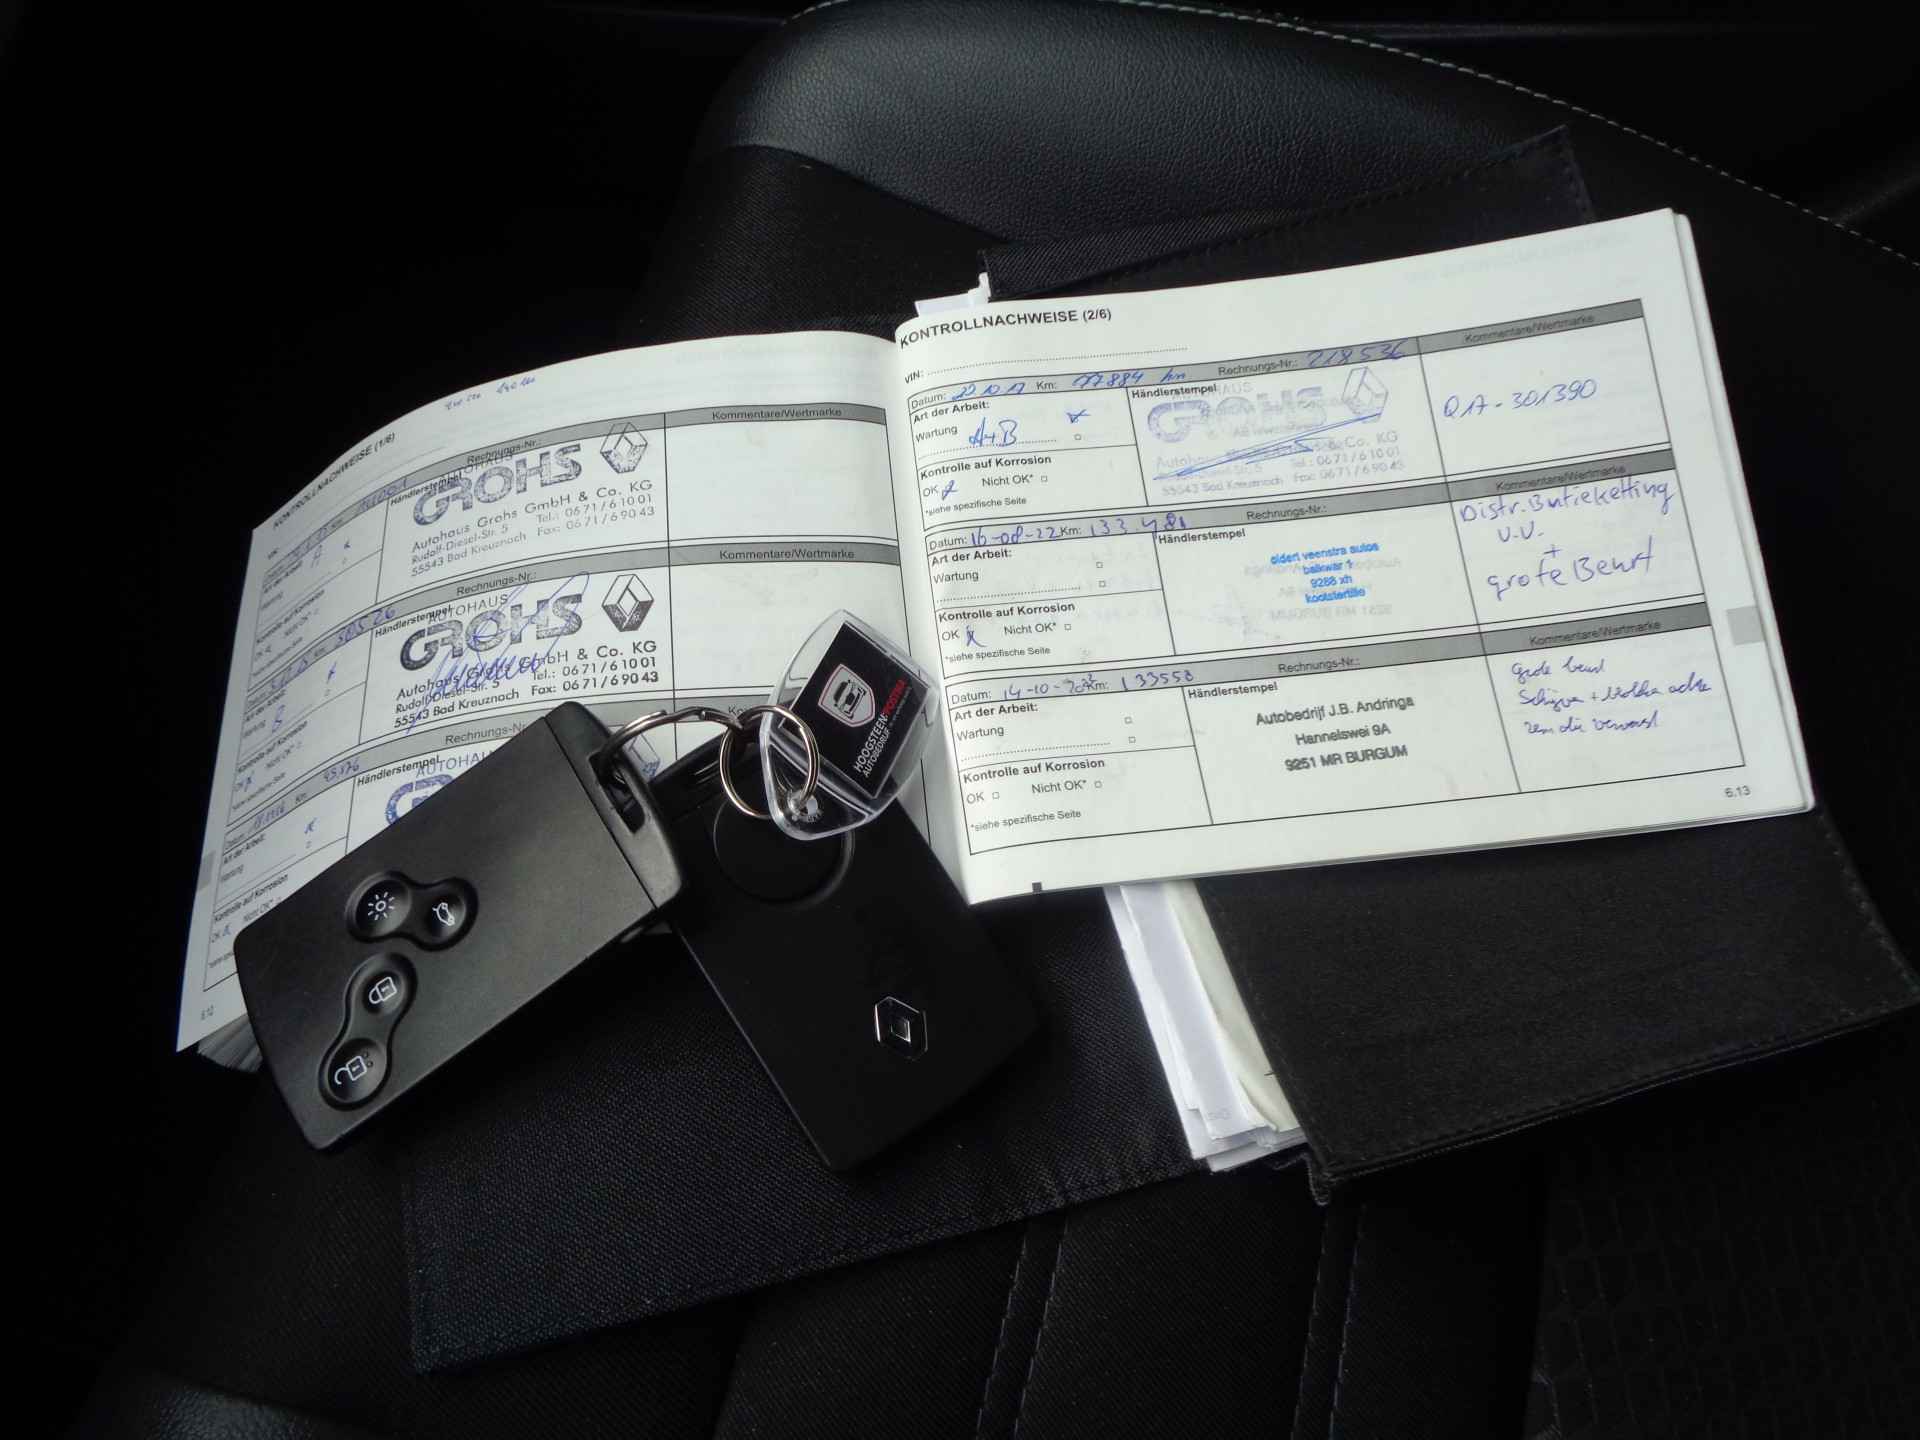 KONTROLLNACHWEISE (1/6)
VIN:
Rechnungs-Nr.:
Kommentare/Wertmarke
Art der Arbeit:
Wartung
Händlerstempel
AUTOHAUS
GROHS
Autohaus Grohs GmbH & Co. KG
Rudolf-Diesel-Str. 5 Tel.: 0671/61001
55543 Bad Kreuznach Fax: 0671/69043
Kontrolle auf Korrosion
OK Nicht OK*
Datum: Km: 30526 Rechnungs-Nr.:
Kommentare/Wertmarke
Art der Arbeit:
Wartung B
Händlerstempel
AUTOHAUS
GROHS
Autohaus Grohs GmbH & Co. KG
Rudolf-Diesel-Str. 5 Tel.: 0671/61001
55543 Bad Kreuznach Fax: 0671/69043
Kontrolle auf Korrosion
OK Nicht OK*
*siehe spezifische Seite
Datum: Km: 45576 Rechnungs-Nr.:
Art der Arbeit:
Wartung
Händlerstempel
AUTOHAUS
Kontrolle auf Korrosion
OK Nicht OK*
6.12
HOOGSTEEN:POSTMA
AUTOBEDRIJF
KONTROLLNACHWEISE (2/6)
VIN:
Datum: 23.10.17 Km: 77884 km Rechnungs-Nr.: 218536
Kommentare/Wertmarke
Art der Arbeit:
Wartung A+B
Händlerstempel
GROHS
Autohaus Grohs GmbH & Co. KG
Rudolf-Diesel-Str. 5 Tel.: 0671/61001
55543 Bad Kreuznach Fax: 0671/69043
Q17-301390
Kontrolle auf Korrosion
OK Nicht OK*
*siehe spezifische Seite
Datum: 16-08-22 Km: 133.481 Rechnungs-Nr.:
Kommentare/Wertmarke
Art der Arbeit:
Wartung
Händlerstempel
oldert veenstra autos
balkwar 1
9288 xh
kootstertille
Distr. Butieketting
V.V.
+
grote Beurt
Kontrolle auf Korrosion
OK x Nicht OK*
*siehe spezifische Seite
Datum: 14-10-2022 Km: 133558 Rechnungs-Nr.:
Kommentare/Wertmarke
Art der Arbeit:
Wartung
Händlerstempel
Autobedrijf J.B. Andringa
Hannelswei 9A
9251 MR BURGUM
Grote beurt
Kontrolle auf Korrosion
OK Nicht OK*
*siehe spezifische Seite
6.13